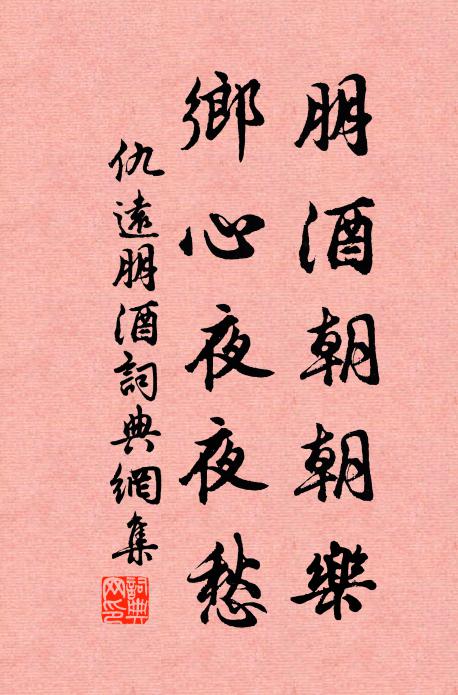 朋酒朝朝樂
鄉心夜夜愁
仇遠朋酒詞典網集
詞典网印